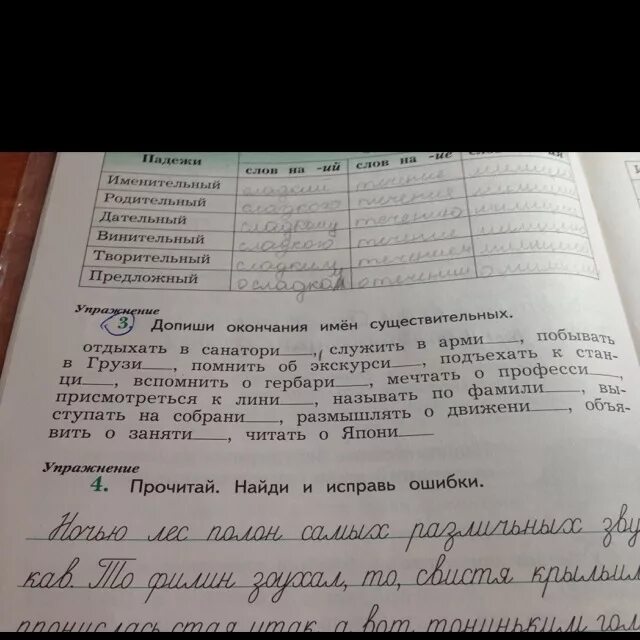 Падежи слов на -ий слов на -ие
Именительный сладкий течение
Родительный сладкого течения
Дательный сладкому течению
Винительный сладкого течение
Творительный сладким течением
Предложный о сладком о течении
Упражнение
3. Допиши окончания имён существительных.
отдыхать в санатори___, служить в арми___, побывать
в Грузи___, помнить об экскурси___, подъехать к стан-
ци___, вспомнить о гербари___, мечтать о професси___,
присмотреться к лини___, называть по фамили___, вы-
ступать на собрани___, размышлять о движени___, объя-
вить о заняти___, читать о Япони___
Упражнение
4. Прочитай. Найди и исправь ошибки.
Ночью лес полон самых различьных зву
кав. То филин зоухал, то, свистя крыльям
пронислась стая утак, а вот тониньким гол